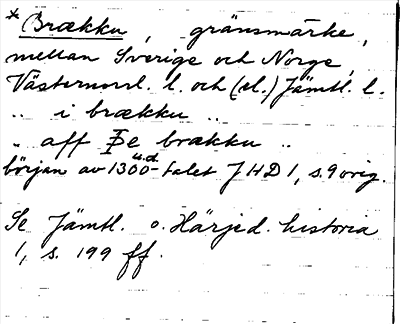 * Brækku, gränsmärke,
mellan Sverige och Norge,
Västernorrl. l. och (el.) Jämtl. l.
" i brækku "
" aff Þe brækku "
början av 1300-talet JHD 1, s. 9 orig.
Se Jämtl. o. Härjed. historia
1, s. 199 ff.